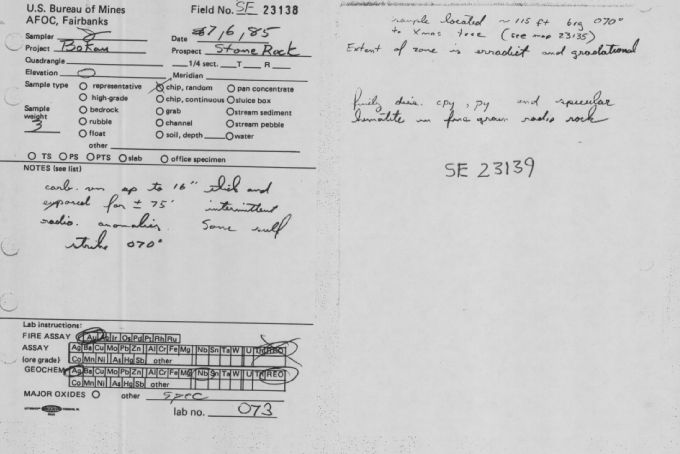 U.S. Bureau of Mines
AFOC, Fairbanks
Field No. SE 23138
Sampler
Date 7,6,85
Project Bokan
Prospect Stone Rock
Quadrangle
1/4 sect. T R
Elevation
Meridian
Sample type
representative
chip, random
pan concentrate
high-grade
chip, continuous
sluice box
Sample weight 3
bedrock
grab
stream sediment
rubble
channel
stream pebble
float
soil, depth
water
other
TS PS PTS slab office specimen
NOTES (see list)
carb. vn up to 16" thick and
exposed for ± 75' intermittent
radio. anomalies. Some sulf
strike 070°
Lab instructions:
FIRE ASSAY Au Ir Os Pd Pt Rh Ru
ASSAY Ag Ba Cu Mo Pb Zn Al Cr Fe Mg Nb Sn Ta W U Th REO
(ore grade) Co Mn Ni As Hg Sb other
GEOCHEM Ag Ba Cu Mo Pb Zn Al Cr Fe Mg Nb Sn Ta W U Th REO
Co Mn Ni As Hg Sb other
MAJOR OXIDES other spec
lab no. 073
sample located ~ 115 ft brg 070°
to Xmas tree (see map 23135)
Extent of zone is erradict and gradational
finely diss. cpy, py and specular
hematite in fine grain radio rock
SE 23139